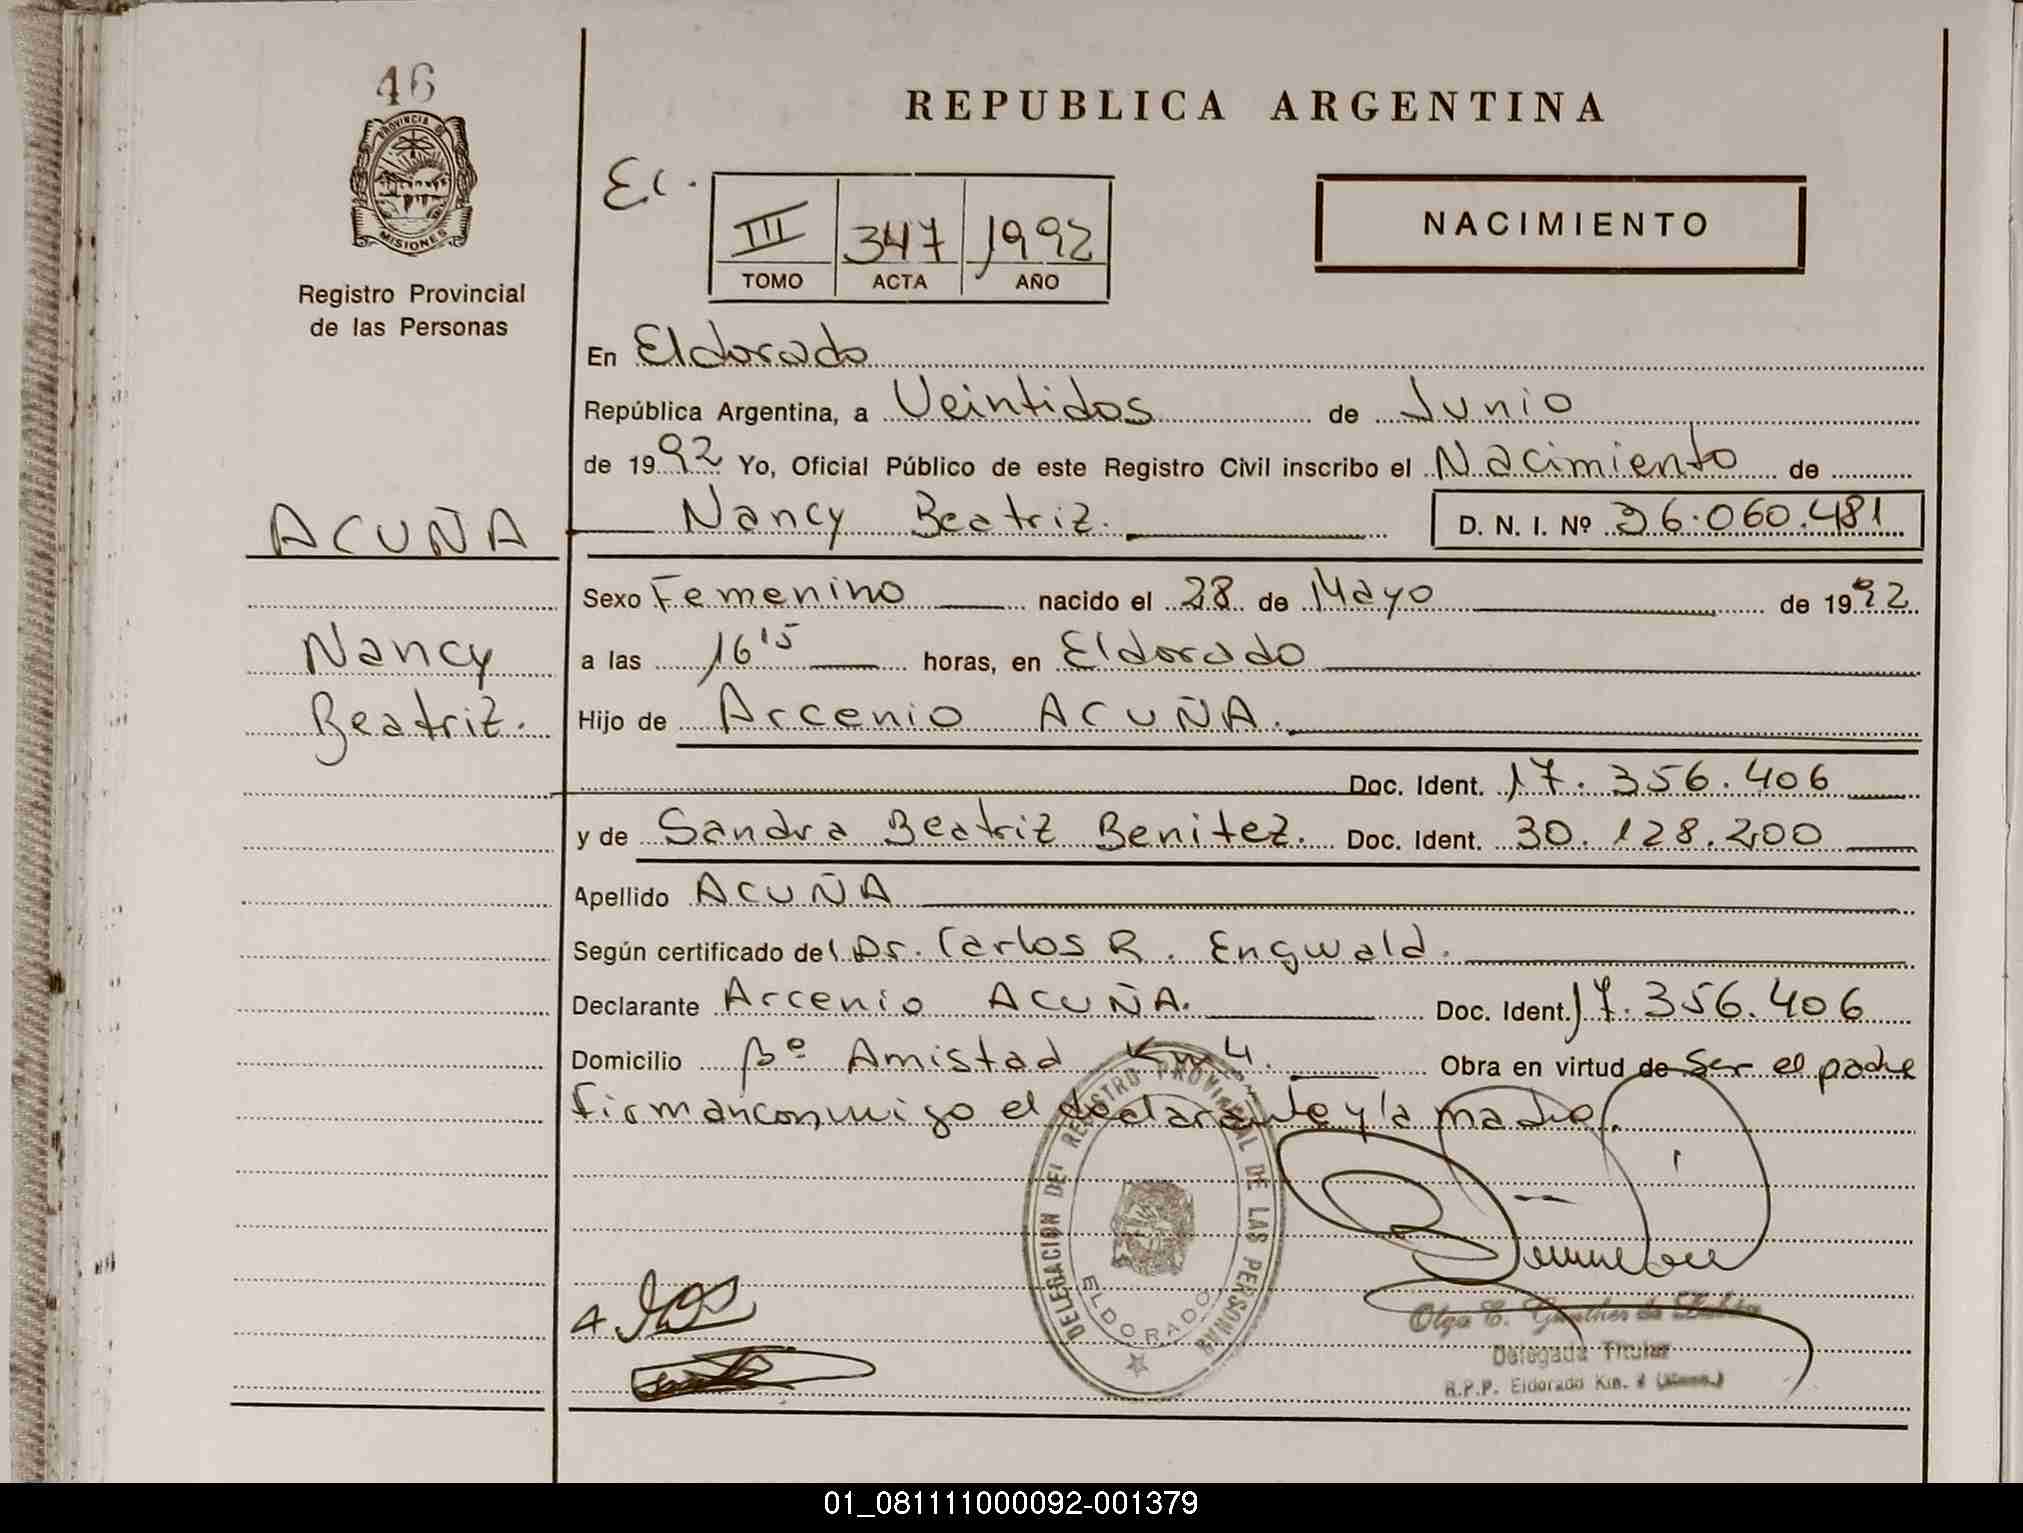 46
PROVINCIA DE
MISIONES
Registro Provincial
de las Personas
REPUBLICA ARGENTINA
Ec.
III 347 1992
TOMO ACTA AÑO
NACIMIENTO
En Eldorado
República Argentina, a Veintidos de Junio
de 1992 Yo, Oficial Público de este Registro Civil inscribo el Nacimiento de
ACUÑA
Nancy Beatriz. D. N. I. Nº 36.060.481
Sexo Femenino nacido el 28 de Mayo de 1992
Nancy
a las 16 15 horas, en Eldorado
Beatriz.
Hijo de Arcenio ACUÑA.
Doc. Ident. 17.356.406
y de Sandra Beatriz Benitez. Doc. Ident. 30.128.200
Apellido ACUÑA
Según certificado del Dr. Carlos R. Engwald.
Declarante Arcenio ACUÑA. Doc. Ident. 17.356.406
Domicilio Bº Amistad Km 4. Obra en virtud de ser el padre
Firman conmigo el declarante y la madre.
DELEGACION DEL REGISTRO PROVINCIAL DE LAS PERSONAS
ELDORADO
Olga C. Gunther de
Delegada Titular
R.P.P. Eldorado Km.
01_081111000092-001379